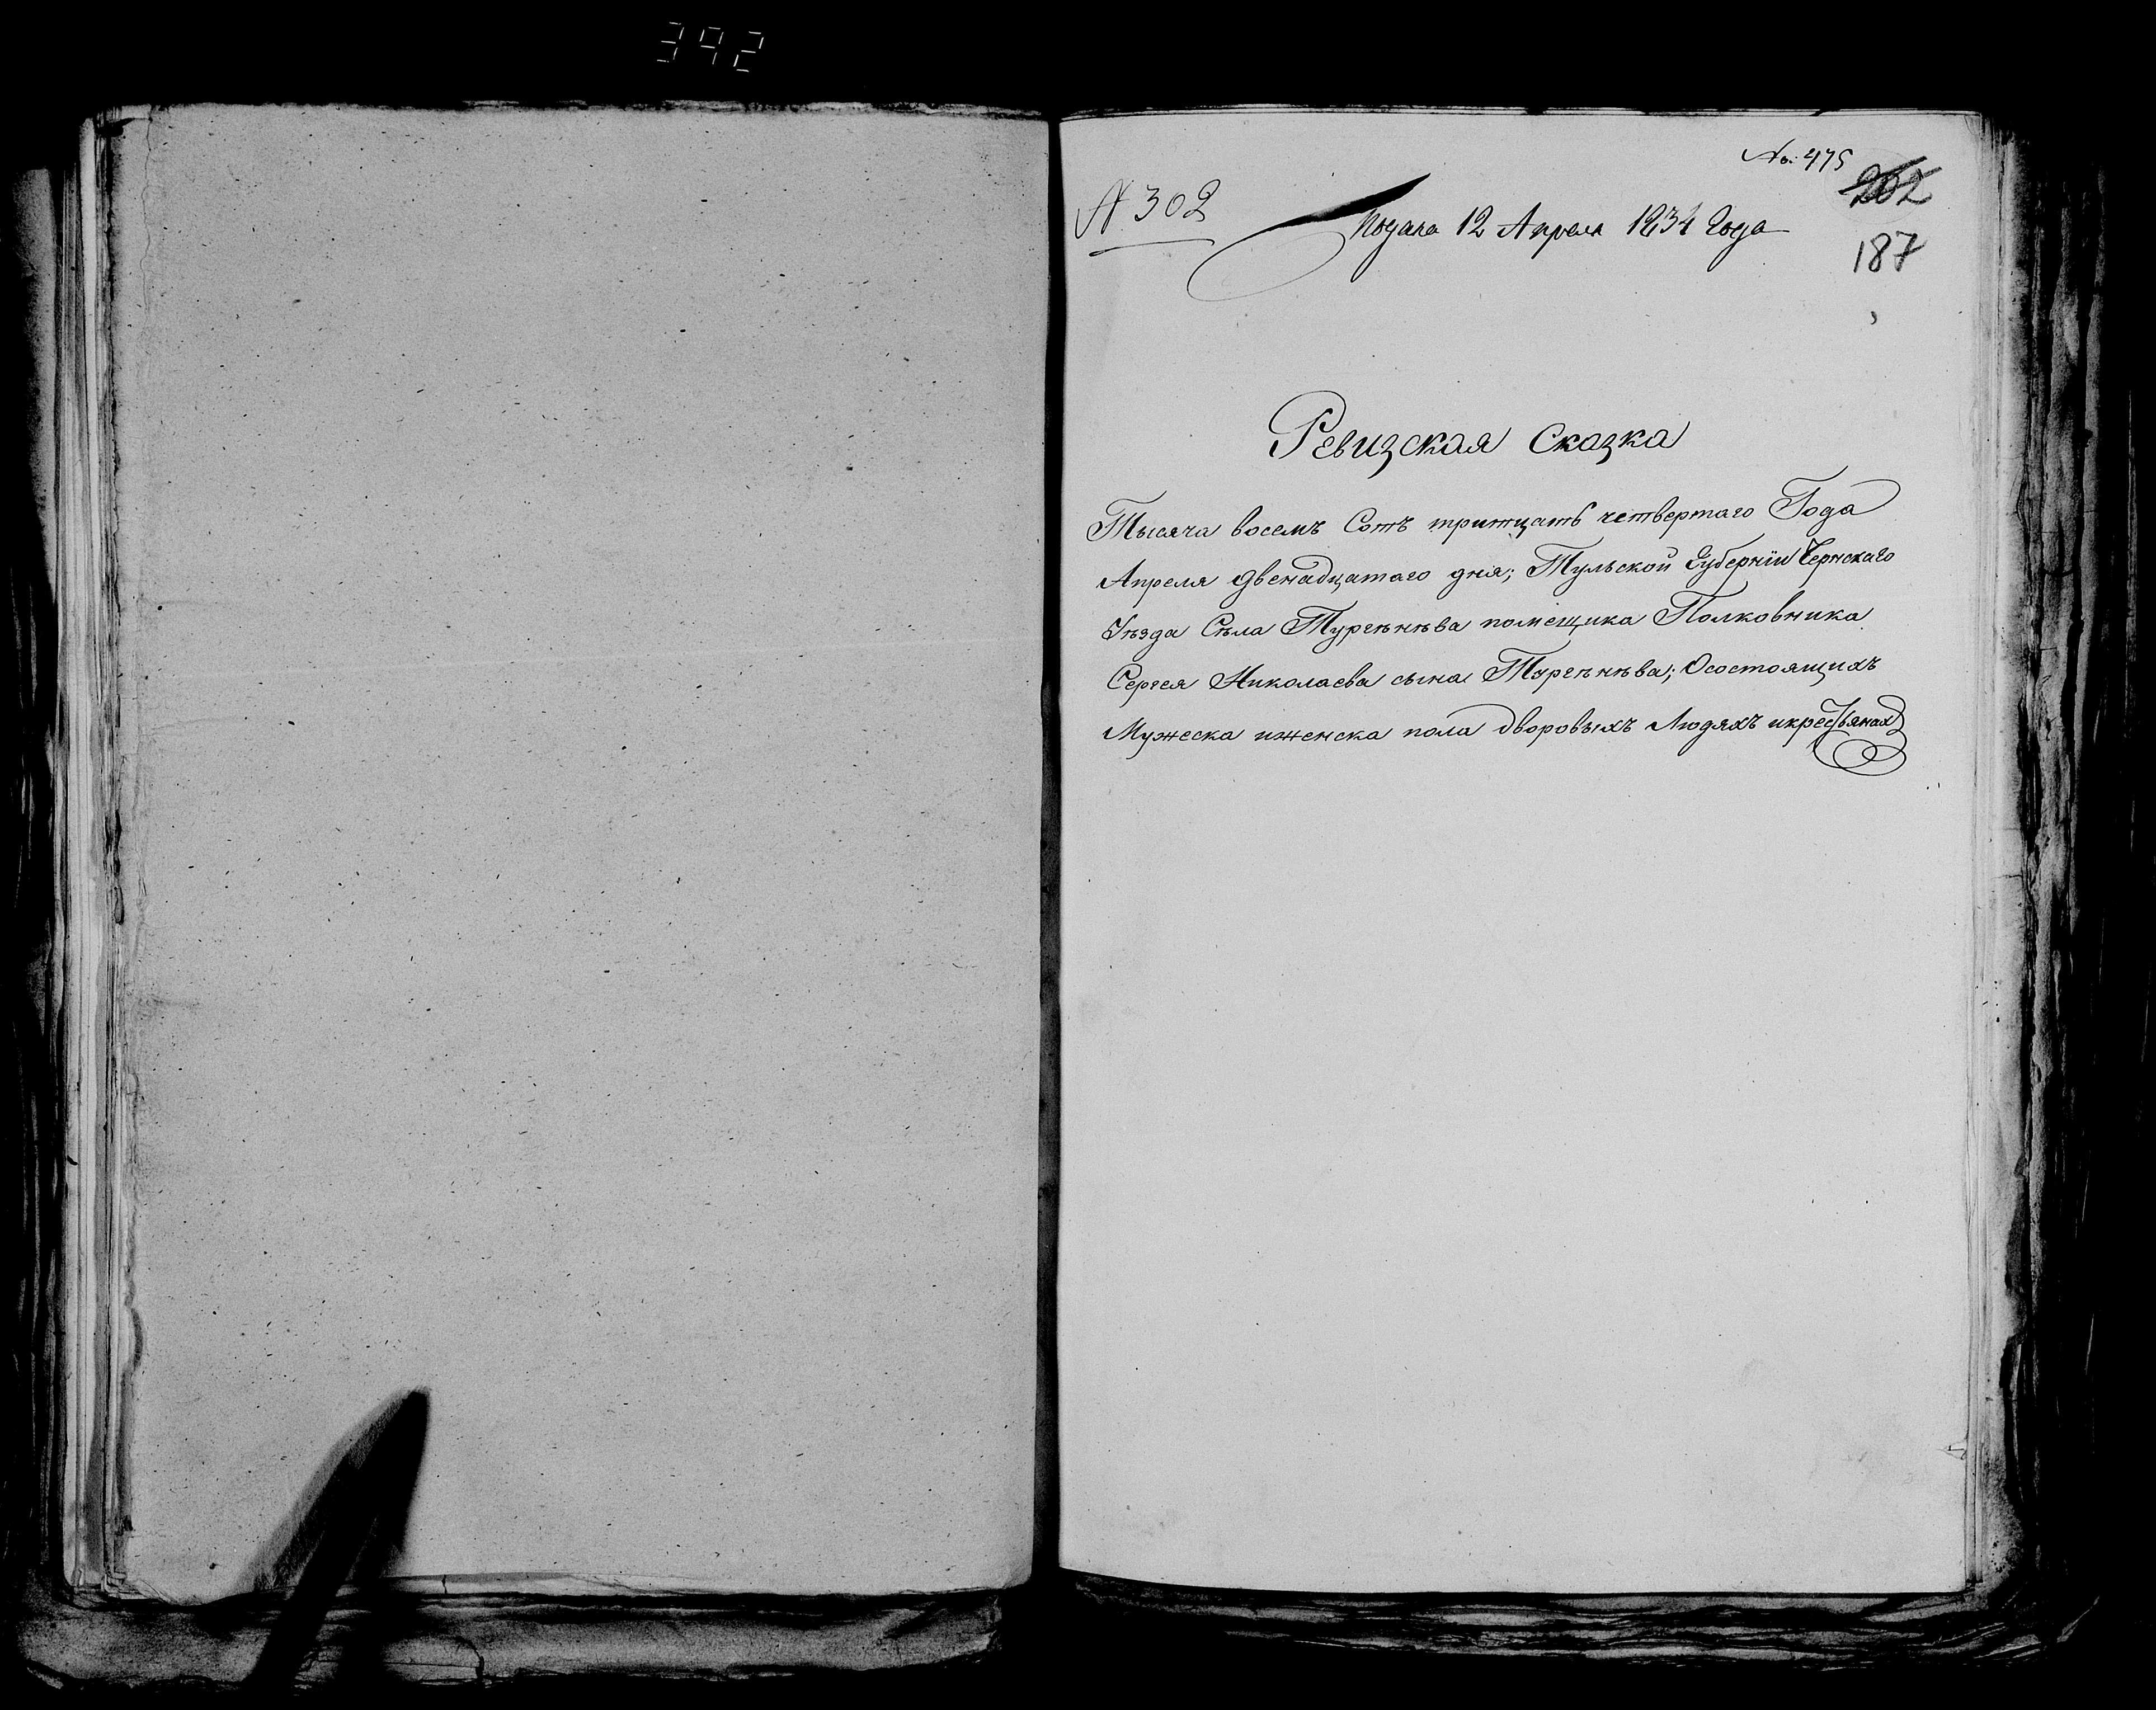 392
№ 475
№ 302
202
Подана 12 Апреля 1834 Года
187
Ревизская Сказка
Тысяча восемъ Сотъ тритцать четвертаго Года
Апреля двенадцатаго дня; Тульской Губернiи Чернскаго
Уѣзда Сѣла Тургѣнѣва помещика Полковника
Сергея Николаева сына Тургѣнѣва; Осостоящихъ
Мужеска иженска пола дворовыхъ Людяхъ икрестьянах